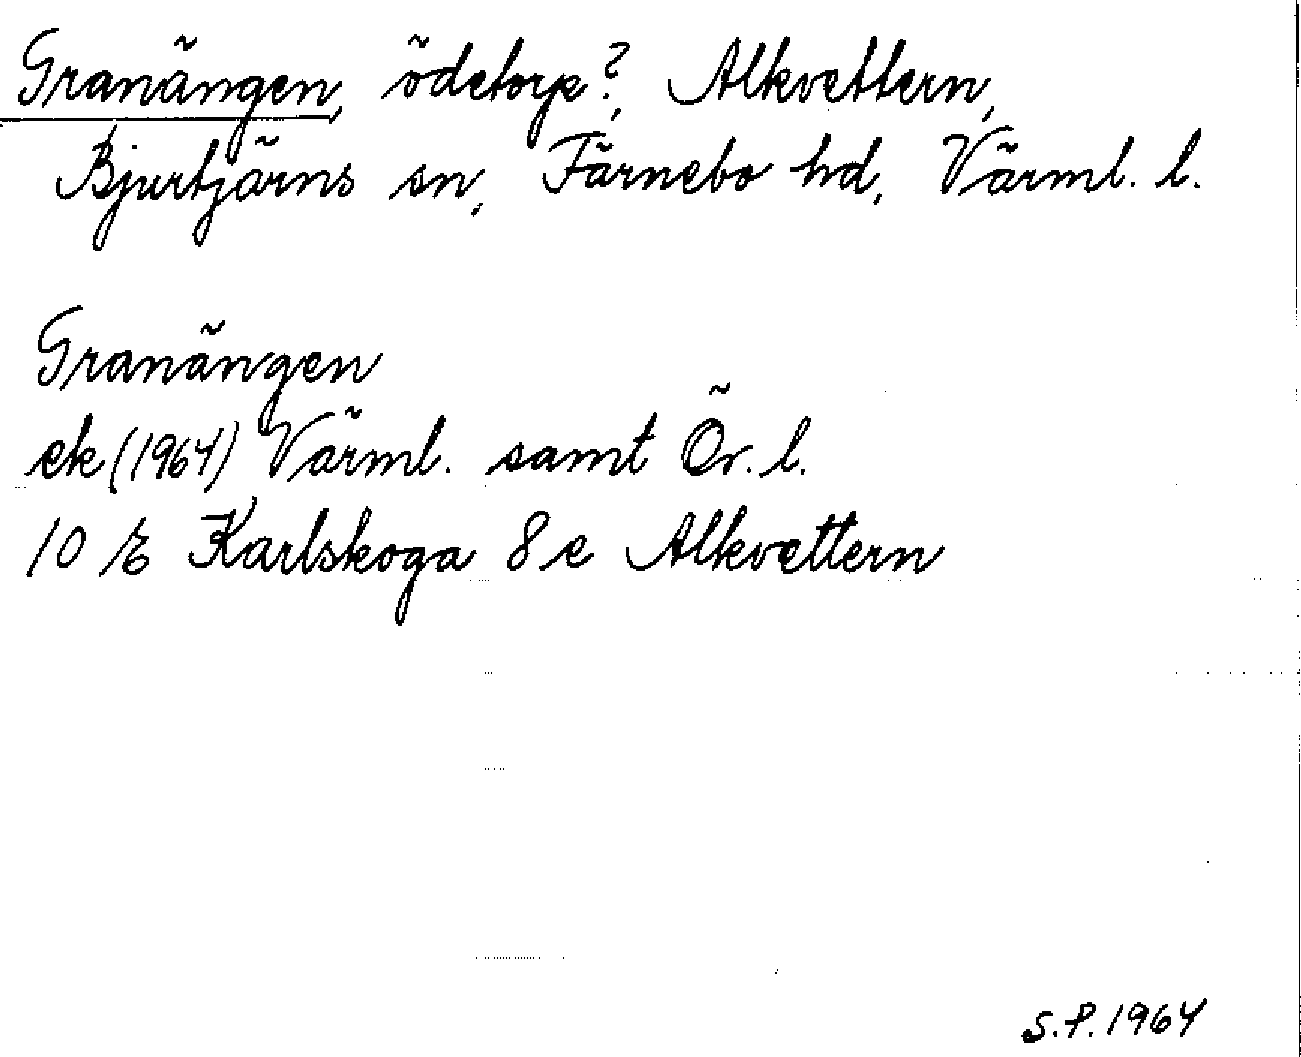 Granängen, ödetorp?, Alkvettern,
Bjurtjärns sn, Färnebo hd, Värml. l.
Granängen
ek (1964) Värml. samt Ör. l.
10 E Karlskoga 8 e Alkvettern
S.P. 1964